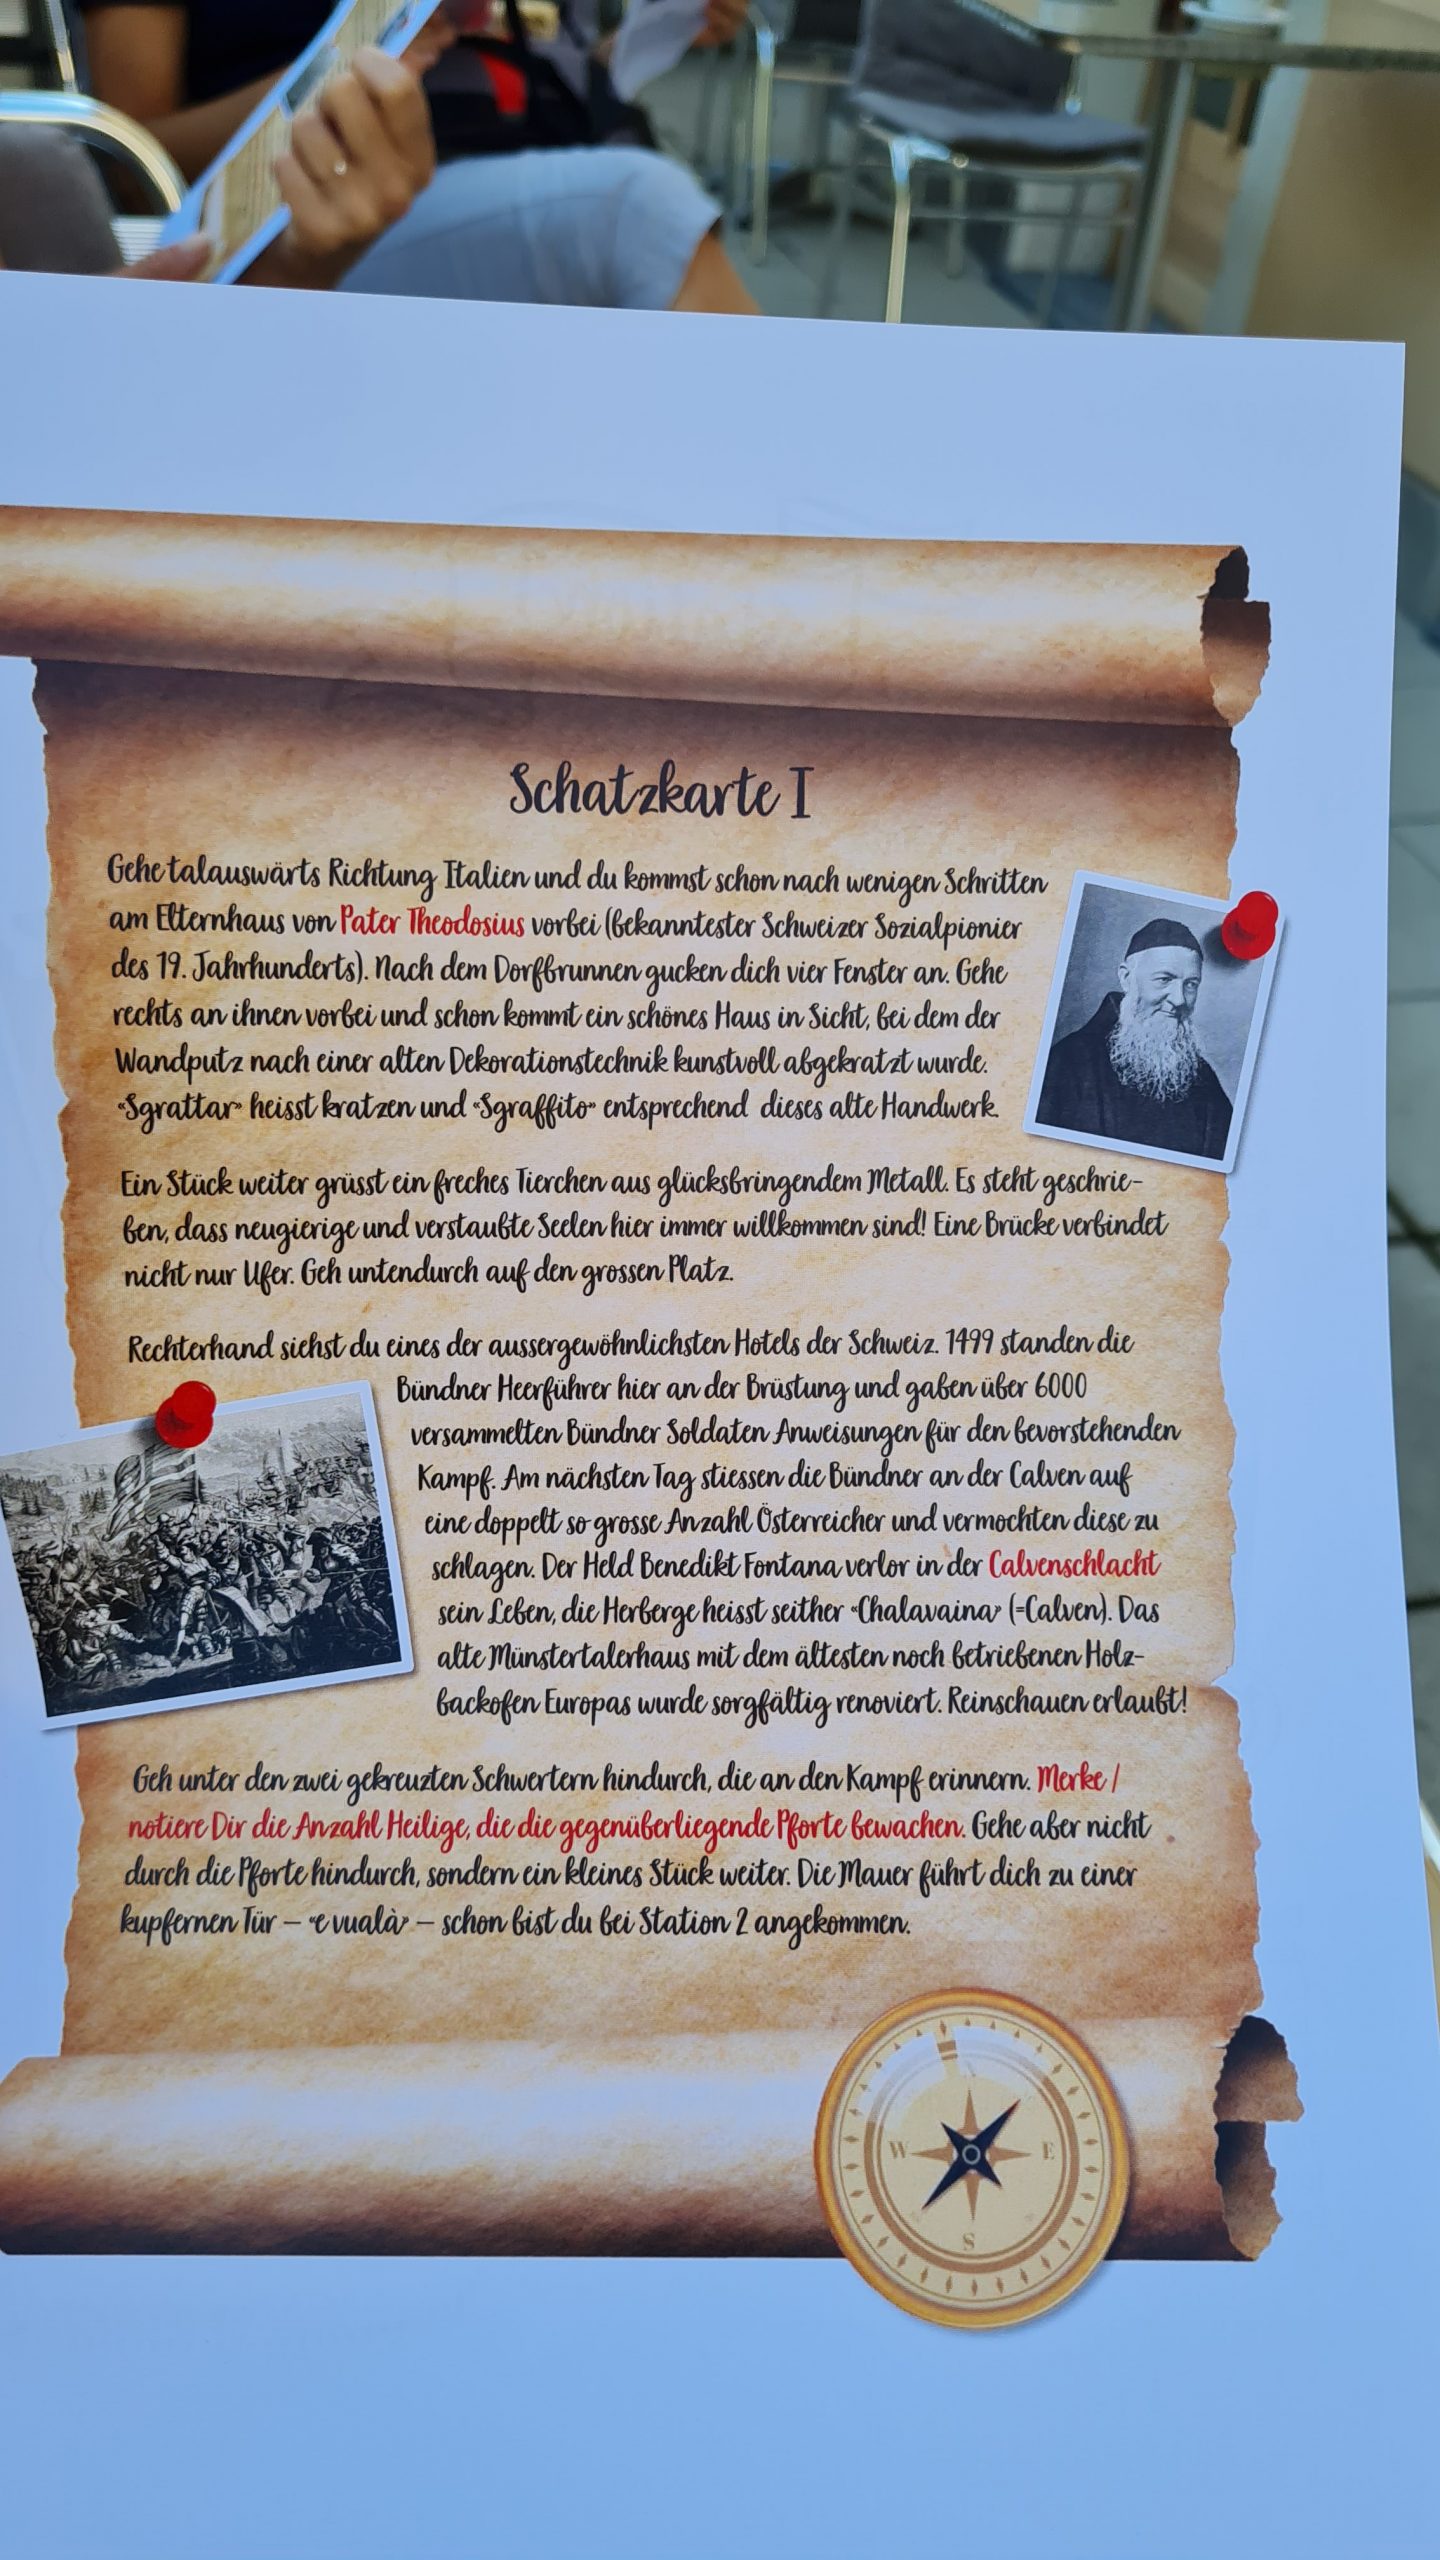 Schatzkarte I
Gehe talauswärts Richtung Italien und du kommst schon nach wenigen Schritten
am Elternhaus von Pater Theodosius vorbei (bekanntester Schweizer Sozialpionier
des 19. Jahrhunderts). Nach dem Dorfbrunnen gucken dich vier Fenster an. Gehe
rechts an ihnen vorbei und schon kommt ein schönes Haus in Sicht, bei dem der
Wandputz nach einer alten Dekorationstechnik kunstvoll abgekratzt wurde.
«Sgrattar» heisst kratzen und «Sgraffito» entsprechend dieses alte Handwerk.
Ein Stück weiter grüsst ein freches Tierchen aus glücksbringendem Metall. Es steht geschrie-
ben, dass neugierige und verstaubte Seelen hier immer willkommen sind! Eine Brücke verbindet
nicht nur Ufer. Geh untendurch auf den grossen Platz.
Rechterhand siehst du eines der aussergewöhnlichsten Hotels der Schweiz. 1499 standen die
Bündner Heerführer hier an der Brüstung und gaben über 6000
versammelten Bündner Soldaten Anweisungen für den bevorstehenden
Kampf. Am nächsten Tag stiessen die Bündner an der Calven auf
eine doppelt so grosse Anzahl Österreicher und vermochten diese zu
schlagen. Der Held Benedikt Fontana verlor in der Calvenschlacht
sein Leben, die Herberge heisst seither «Chalavaina» (=Calven). Das
alte Münstertalerhaus mit dem ältesten noch betriebenen Holz-
backofen Europas wurde sorgfältig renoviert. Reinschauen erlaubt!
Geh unter den zwei gekreuzten Schwertern hindurch, die an den Kampf erinnern. Merke /
notiere Dir die Anzahl Heilige, die die gegenüberliegende Pforte bewachen. Gehe aber nicht
durch die Pforte hindurch, sondern ein kleines Stück weiter. Die Mauer führt dich zu einer
kupfernen Tür – «e vualà» – schon bist du bei Station 2 angekommen.
W E
S